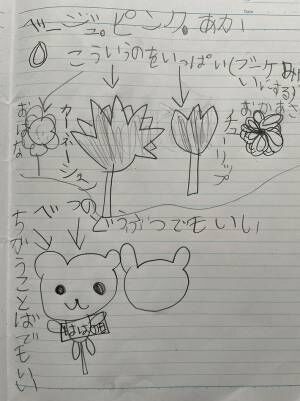 ベージュ。ピンク。あか
こういうのをいっぱい(ブーケ
みたいにする)
おはな
カーネーション
チューリップ
おかあさ
べつの
どうぶつでもいい
ははのひ
ちがうことばでもいい